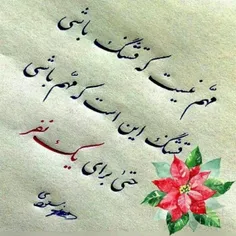 مهم نیست که قشنگ باشی
قشنگ این است که مهم باشی
حتی برای یک نفر